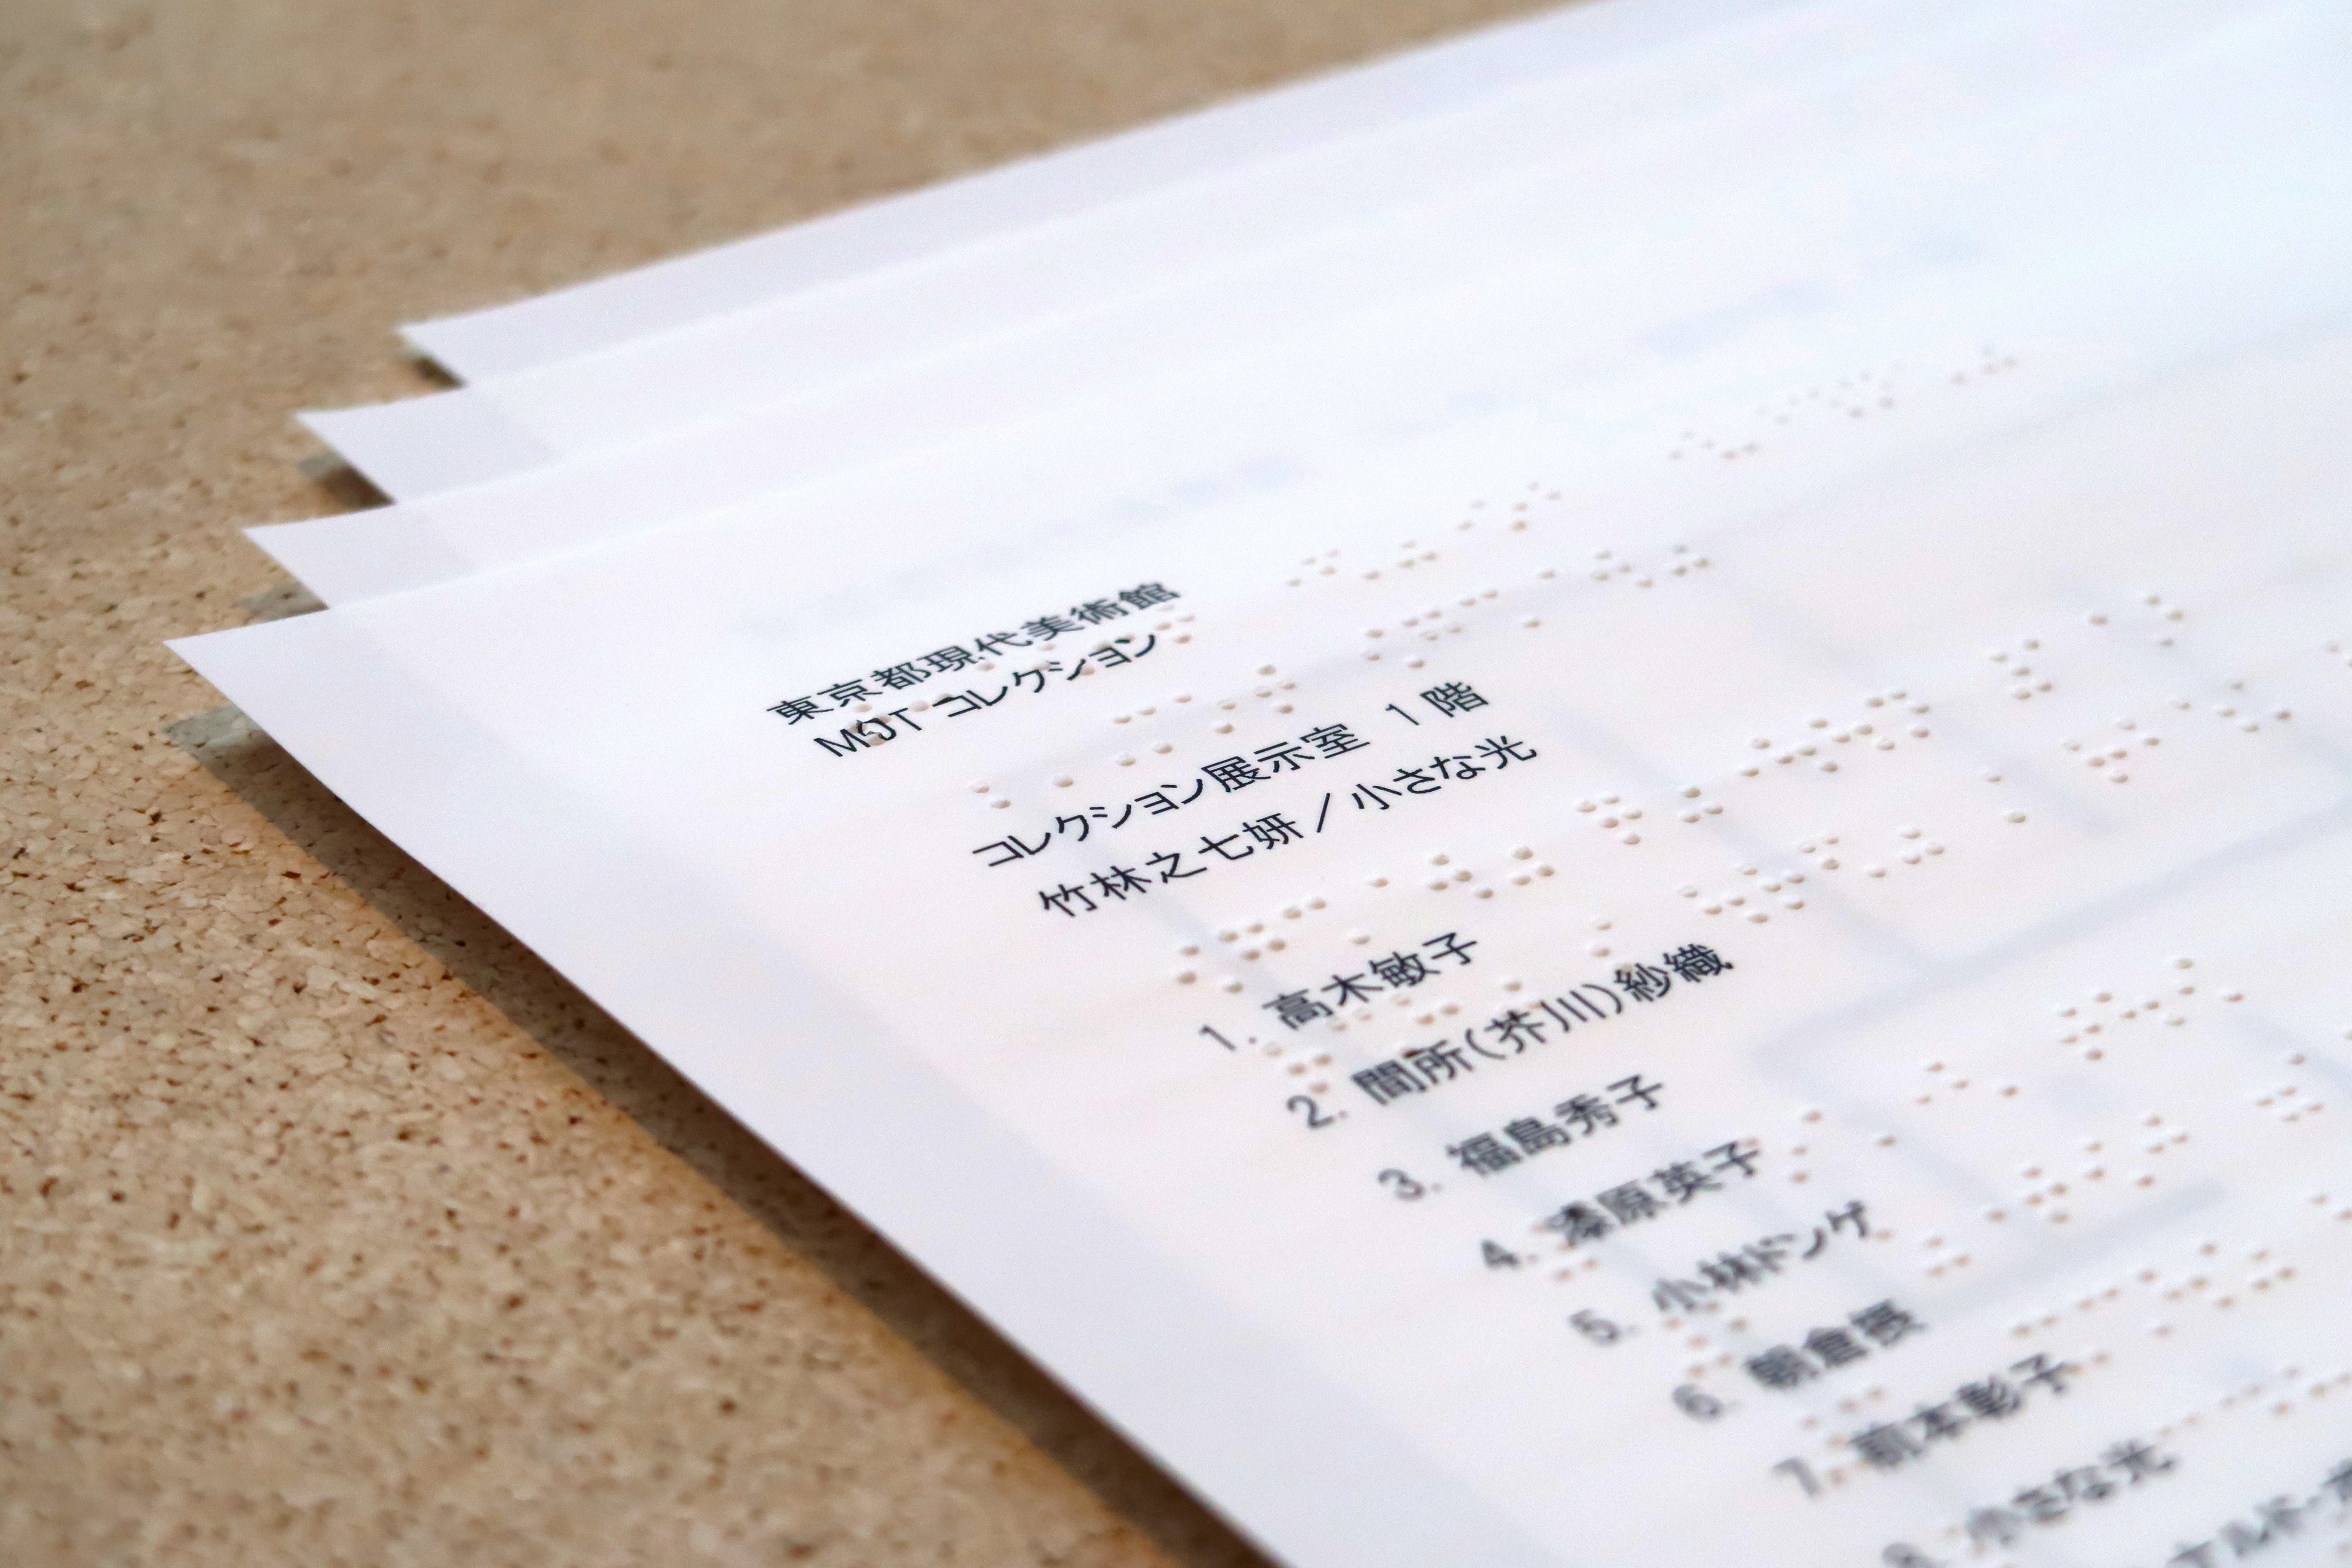 東京都現代美術館
MOT コレクション
コレクション展示室 1 階
竹林之七妍／小さな光
1. 高木敏子
2. 間所(芥川)紗織
3. 福島秀子
4. 漆原英子
5. 小林ドンゲ
6. 朝倉摂
7. 前本彰子
8. 小さな光